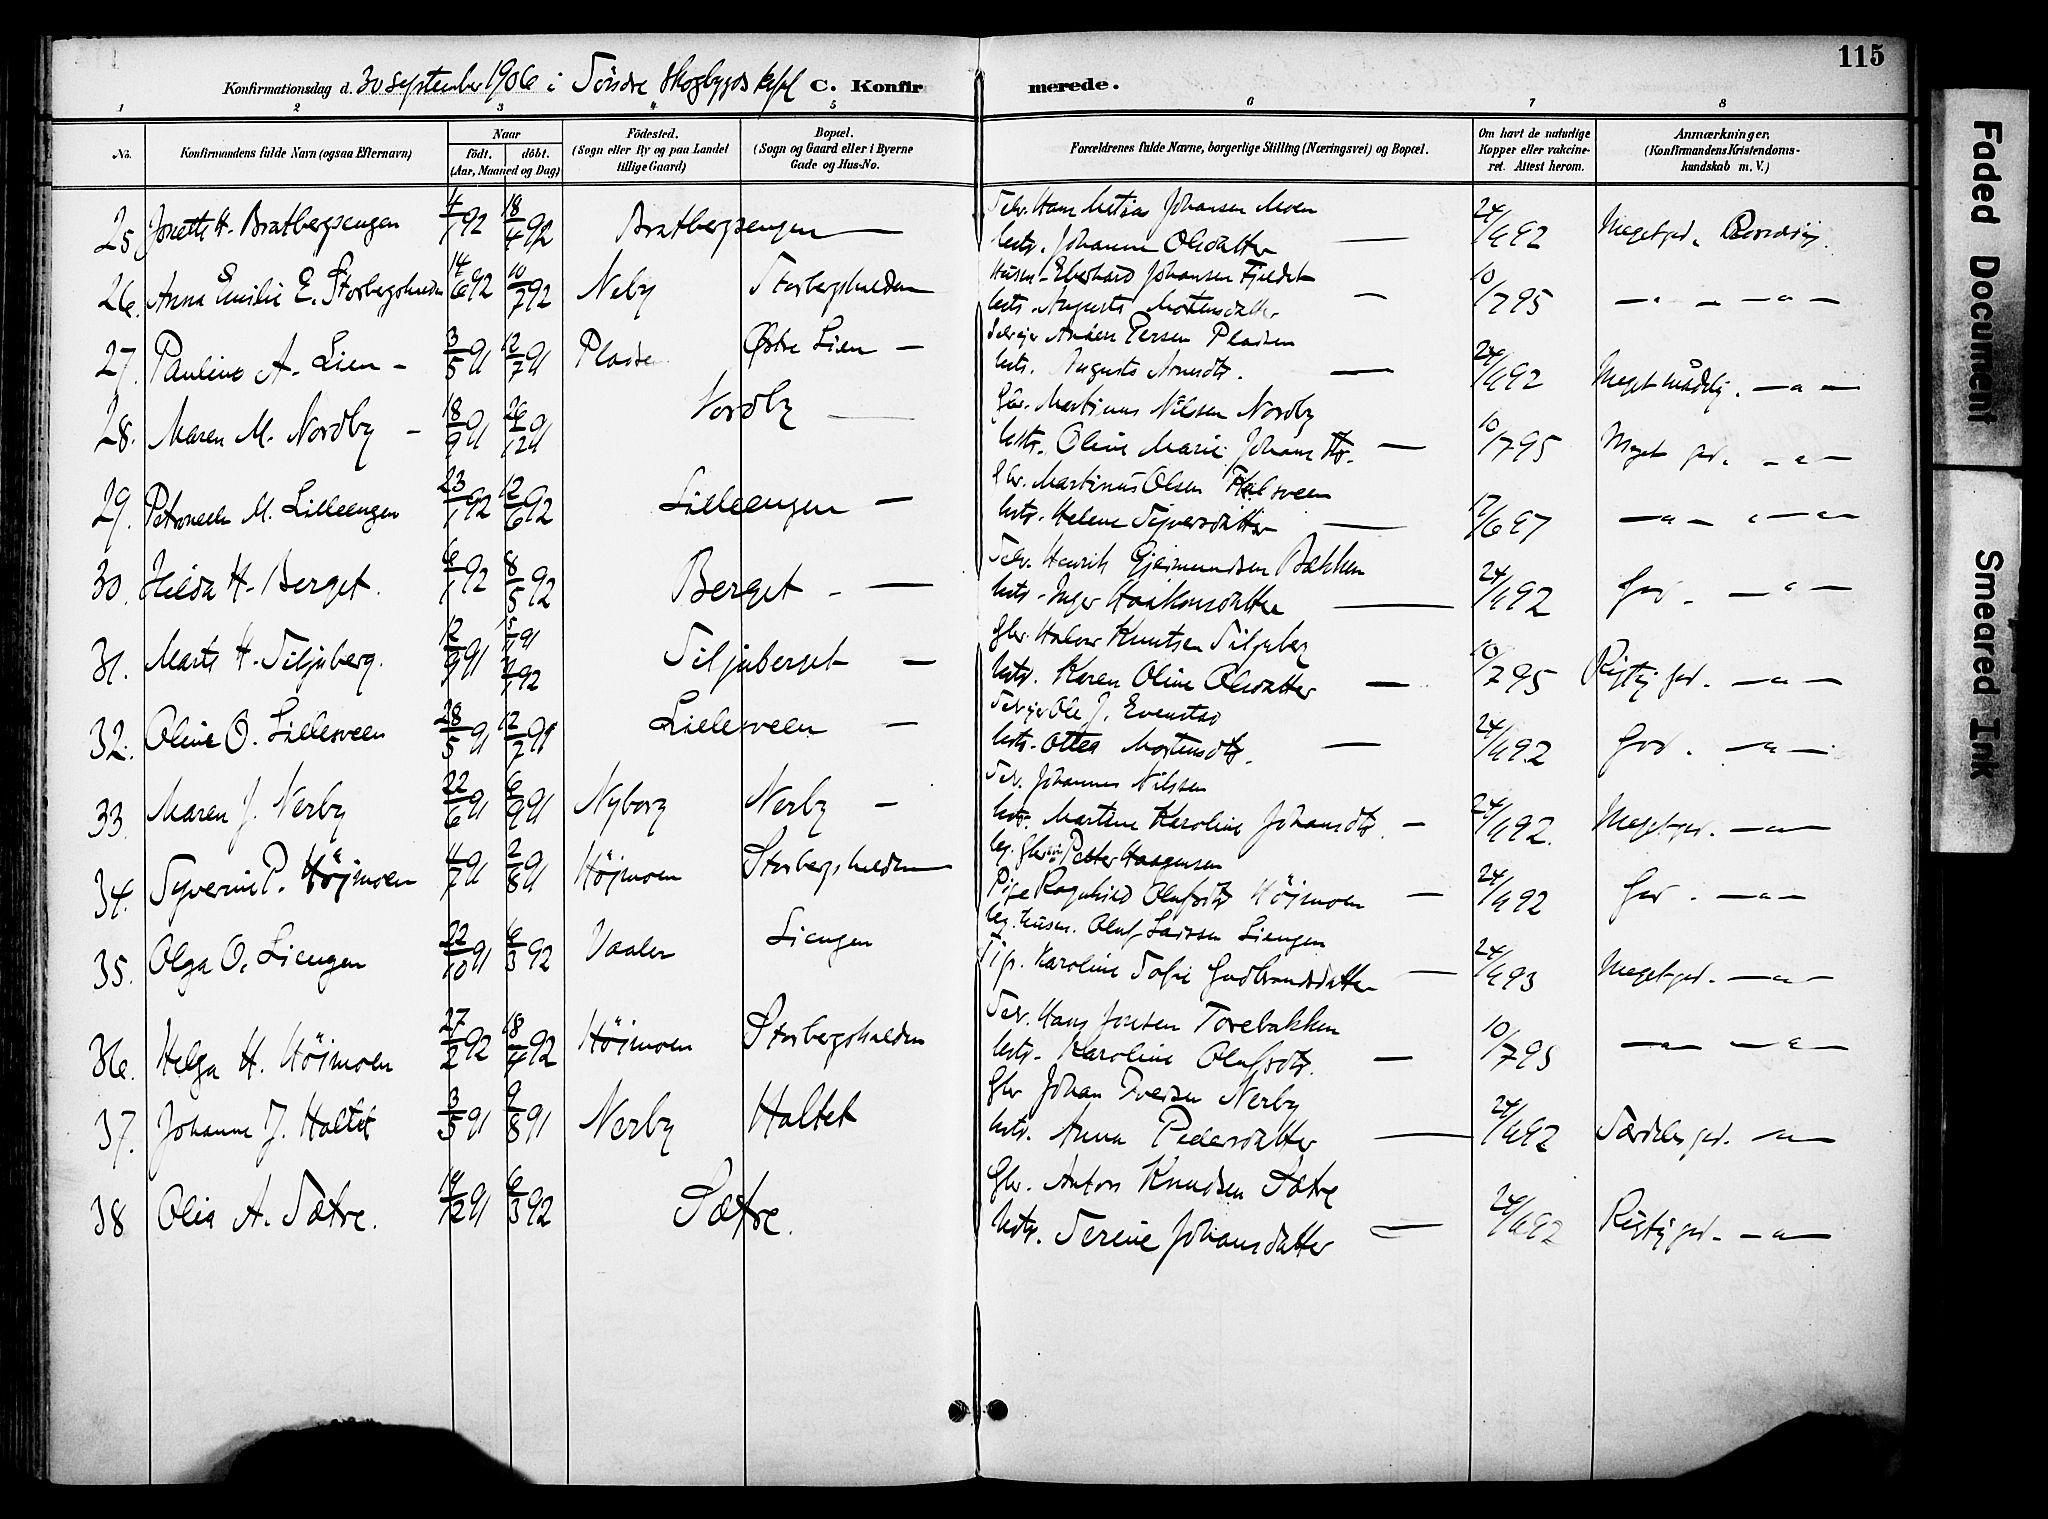 115
Konfirmationsdag d. 30 september 1906 i Söndre Skogbygds kpl C. Konfirmerede.
1 2 3 4 5 6 7 8
No. Konfirmandens fulde Navn (ogsaa Efternavn) Naar födt. döbt. (Aar, Maaned og Dag) Födested. (Sogn eller By og paa Landet tillige Gaard) Bopæl. (Sogn og Gaard eller i Byerne Gade og Hus-No. Forældrenes fulde Navne, borgerlige Stilling (Næringsvei) og Bopæl. Om havt de naturlige Kopper eller vakcineret. Attest herom. Anmærkninger, (Konfirmandens Kristendomskundskab m. V.)
25 Josette H. Bratbergsengen 4/1 92 18/4 92 Bratbergsengen — Selv. Hans Matias Johansen Moen
Hustr. Johanne Olsdatter — 24/6 92 Meget god.
26. Anna Emilie E. Storbergshulden 14/6 92 10/7 92 Neby Storbergshulden Husm. Eberhard Johansen Fjeldet
Hustr. Augusta Mortensdatter — 10/7 95 — " — " —
27. Pauline A. Lien - 3/5 91 12/7 91 Pladse Østre Lien — Selvejer Anders Persen Pladsen
Hustr. Augusta Arnesdtr. — 24/6 92 Meget måtelig. — " —
28. Maren M. Nordby - 18/9 91 26/12 91 Nordby — Gbr. Martinus Nilsen Nordby
Hustr. Oline Marie Johansdtr. — 10/7 95 Meget god. — " —
29. Petronelle M. Lilleengen 23/1 92 12/6 92 Lilleengen — Gbr. Martinus Olsen
Hustr. Helene Syversdatter — 17/6 97 — " — " — " —
30. Hilda H. Berget. 6/1 92 8/5 92 Berget — Selv. Henrik Gjermundsen Bakken
Hustr. Inger Haakonsdatter — 24/6 92 God. — " —
31. Marte H. Siljuberg. 12/9 91 15/11 91 Siljuberget — Gbr. Halvor Knutsen Siljuberg
Hustr. Karen Oline Olsdatter — 10/7 95 Rigtig god. — " —
32. Oline O. Lillesveen 28/5 91 12/7 91 Lillesveen — Selvejer Ole J. Evenstad
Hustr. Ottea Mortensdtr. — 24/6 92 God. — " —
33. Maren J. Nerby 22/6 91 6/9 91 Nyborg Nerby — Selv. Johannes Nilsen
Hustr. Martine Karoline Johansdtr. — 24/6 92. Meget god. — " —
34. Syverine P. Höjmoen 4/7 91 2/8 91 Höjmoen Storbergshulden Petter Haagensen
Pige Ragnhild Olufsdtr Höjmoen — 24/6 92 God. — " —
35. Olga O. Liengen 22/10 91 6/3 92 Vaaler Liengen Ug. Husm. Oluf Larsen Liengen
Karoline Sofie Gudbrandsdatter — 24/6 93 Meget god. — " —
36. Helga H. Höjmoen 27/2 92 18/4 92 Höjmoen Storbergshulden Selv. Hans Josefsen Torebakken
Hustr. Karoline Olufsdtr. — 10/7 95 — " — " —
37. Johanne J. Haltet 3/5 91 9/8 91 Nerby Haltet Gbr Johan Iversen Nerby
Hustr. Anna Pedersdatter — 24/6 92 Særdeles god. — " —
38 Olea A. Sætre. 14/12 91 6/3 92 Sætre. Gbr. Anton Knudsen Sætre
Hustr. Serine Johansdatter — 24/6 92 Rigtig god. — " —
Faded Document
Smeared Ink